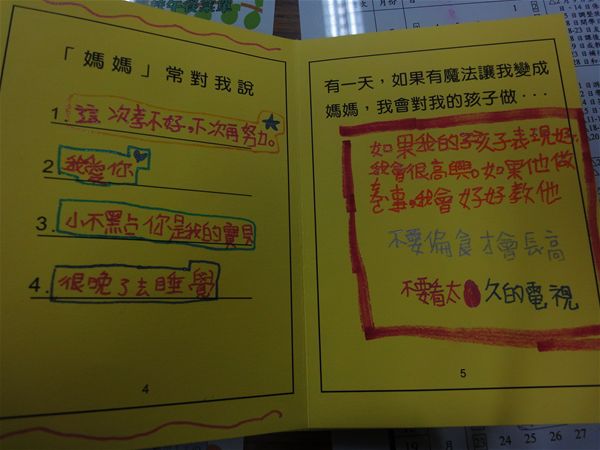 「媽媽」常對我說
1. 這次考不好,下次再努力。
2 我愛你
3. 小不點你是我的寶貝
4. 很晚了去睡覺
4
有一天，如果有魔法讓我變成
媽媽，我會對我的孩子做···
如果我的孩子表現好,
我會很高興。如果他做
壞事,我會好好教他
不要偏食才會長高
不要看太久的電視
5